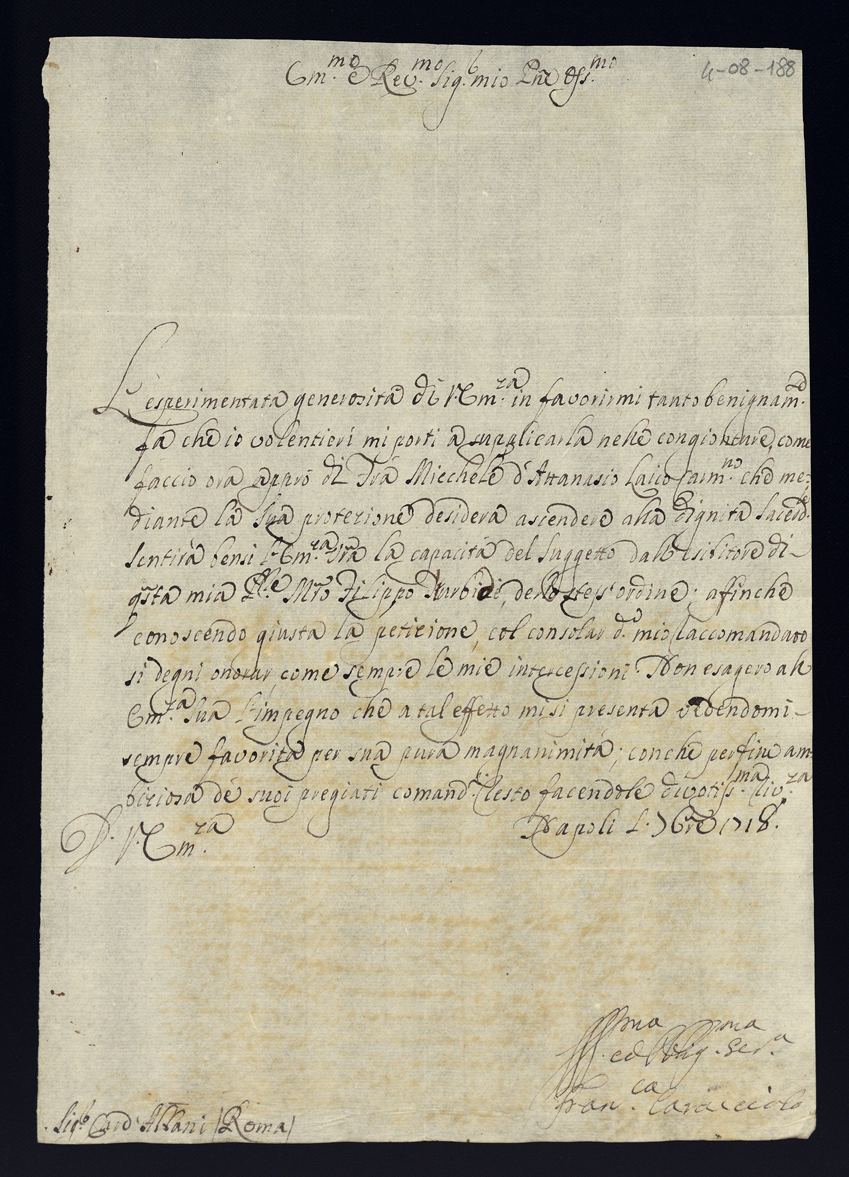 4-08-188
Em.mo e Rev.mo Sig.r mio Pne Oss.mo
L'esperimentata generosità di V. Em.za in favorirmi tanto benignam.
fà che io volentieri mi porti à supplicarla nelle congionture, come
faccio ora appro di Frà Micchele d'Attanasio Laico Carm.no che me-
diante la Sua protezione desidera ascendere alla dignità Sacerd.le
sentirà bensì l'Em.za Sua la capacità del Suggetto dall'esibitore di-
qsta mia P.re Mro Filippo, dello stess'ordine; affinche
conoscendo giusta la petizione, col consolar d.o mio Raccomandato
si degni onorar, come sempre le mie intercessioni. Non esagero all'
Em.za Sua l'impegno che a tal effetto mi si presenta vedendomi-
sempre favorita per sua pura magnanimità; conche per fine am-
biziosa de' suoi pregiati comand.i resto facendole divotiss.ma riv.za
D. V. Em.za
Napoli L. 7bre 1718.
ed Oblig.ma Ser.a
Fran.ca Caracciolo
Sig.r Card. Albani (Roma)